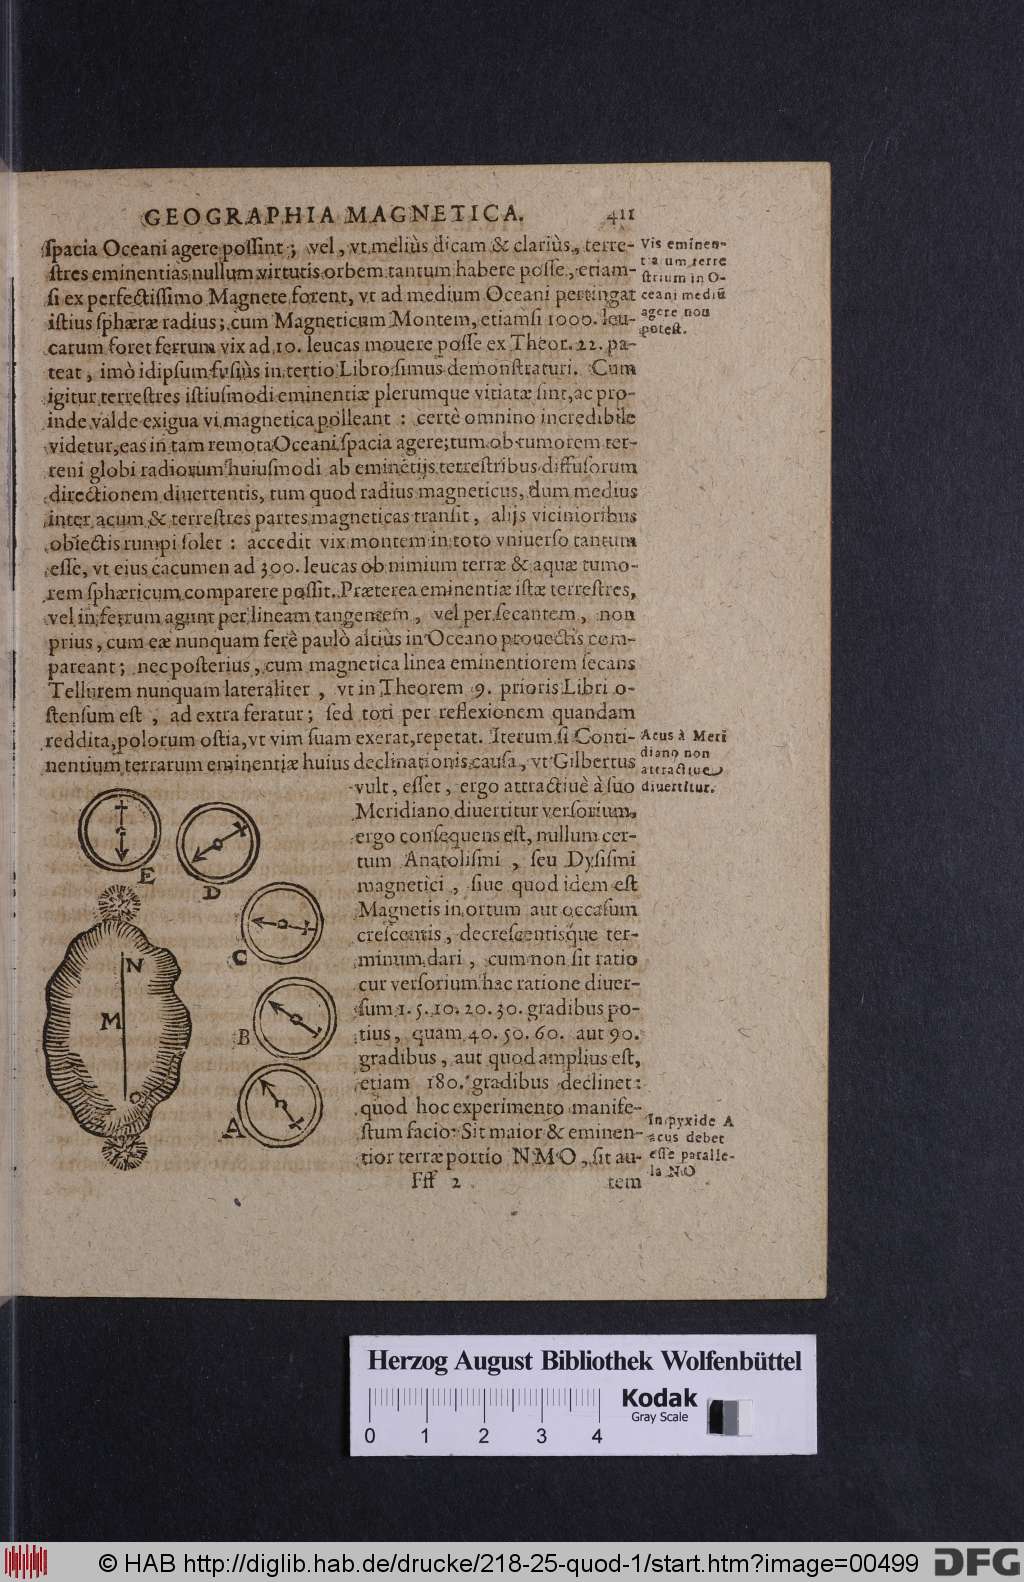 GEOGRAPHIA MAGNETICA. 411
spacia Oceani agere possint; vel, vt meliùs dicam & clariùs, terre-
stres eminentias nullum virtutis orbem tantum habere posse, etiam-
si ex perfectissimo Magnete forent, vt ad medium Oceani pertingat
istius sphæræ radius; cum Magneticum Montem, etiamsi 1000. leu-
carum foret ferrum vix ad 10. leucas mouere posse ex Theor. 22. pa-
teat, imò id ipsum fusiùs in tertio Libro simus demonstraturi. Cum
igitur terrestres istiusmodi eminentiæ plerumque vitiatæ sint, ac pro-
inde valde exigua vi magnetica polleant: certè omnino incredibile
videtur, eas in tam remota Oceani spacia agere; tum ob tumorem ter-
reni globi radiorum huiusmodi ab eminētijs terrestribus diffusorum
directionem diuertentis, tum quod radius magneticus, dum medius
inter acum & terrestres partes magneticas transit, alijs vicinioribus
obiectis rumpi solet: accedit vix montem in toto vniuerso tantum
esse, vt eius cacumen ad 300. leucas ob nimium terræ & aquæ tumo-
rem sphæricum comparere possit. Præterea eminentiæ istæ terrestres,
vel in ferrum agunt per lineam tangentem, vel per secantem, non
prius, cum eæ nunquam ferè paulò altiùs in Oceano prouectis com-
pareant; nec posterius, cum magnetica linea eminentiorem secans
Tellurem nunquam lateraliter, vt in Theorem 9. prioris Libri o-
stensum est, ad extra feratur; sed toti per reflexionem quandam
reddita, polorum ostia, vt vim suam exerat, repetat. Iterum si Conti-
nentium terrarum eminentiæ huius declinationis causa, vt Gilbertus
vult, esset, ergo attractiuè à suo
Meridiano diuertitur versorium,
ergo consequens est, nullum cer-
tum Anatolismi, seu Dysismi
magnetici, siue quod idem est
Magnetis in ortum aut occasum
crescentis, decrescentisque ter-
minum dari, cum non sit ratio
cur versorium hac ratione diuer-
sum 1. 5. 10. 20. 30. gradibus po-
tius, quam 40. 50. 60. aut 90.
gradibus, aut quod amplius est,
etiam 180. gradibus declinet:
quod hoc experimento manife-
stum facio: Sit maior & eminen-
tior terræ portio N M O, sit au-
Fff 2 tem
Vis eminen-
tiarum terre
strium in O-
ceani mediū
agere non
potest.
Acus à Meri
diano non
attractiue
diuertitur.
In pyxide A
acus debet
esse paralle-
la NO
E
D
C
B
A
N
M
O
Herzog August Bibliothek Wolfenbüttel
Kodak
Gray Scale
0 1 2 3 4
© HAB http://diglib.hab.de/drucke/218-25-quod-1/start.htm?image=00499
DFG